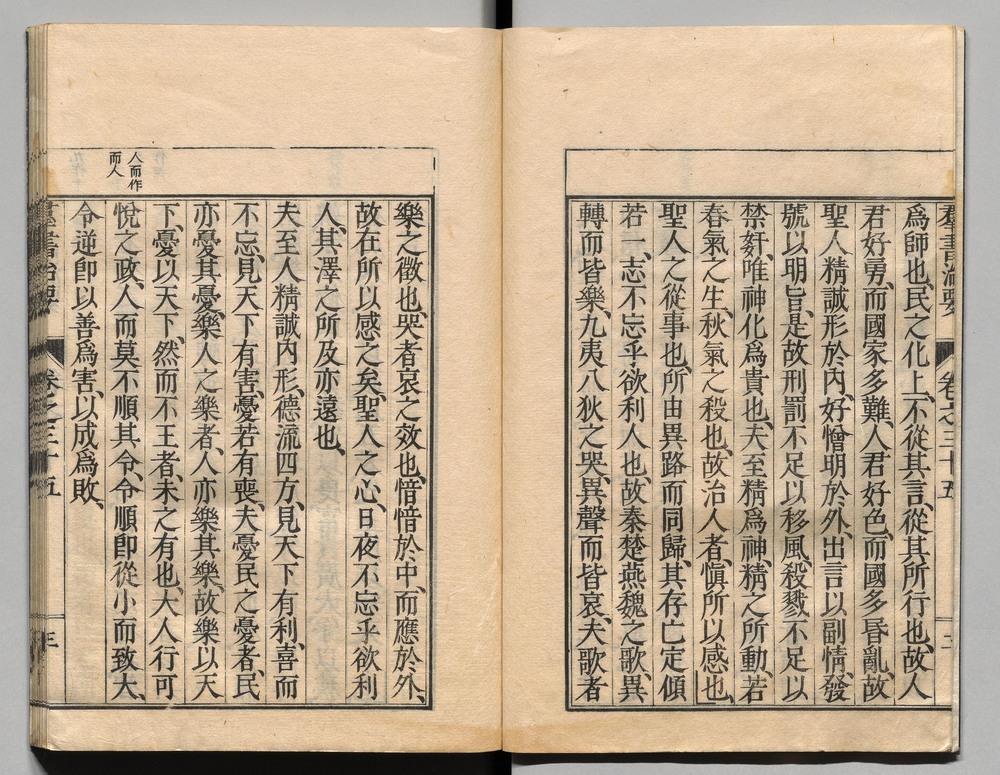 羣書治要 卷之三十五
爲師也、民之化上、不從其言、從其所行也、故人
君好勇、而國家多難、人君好色、而國多昏亂、故
聖人精誠形於內、好憎明於外、出言以副情、發
號以明旨、是故刑罰不足以移風、殺戮不足以
禁姧、唯神化爲貴也、夫至精爲神、精之所動、若
春氣之生、秋氣之殺也、故治人者、愼所以感也、
聖人之從事也、所由異路而同歸、其存亡定傾
若一、志不忘乎欲利人也、故秦楚燕魏之歌、異
轉而皆樂、九夷八狄之哭、異聲而皆哀、夫歌者
樂之徵也、哭者哀之效也、愔愔於中、而應於外、
故在所以感之矣、聖人之心、日夜不忘乎欲利
人、其澤之所及亦遠也、
夫至人精誠內形、德流四方、見天下有利、喜而
不忘、見天下有害、憂若有喪、夫憂民之憂者、民
亦憂其憂、樂人之樂者、人亦樂其樂、故樂以天
下、憂以天下、然而不王者、未之有也、大人行可
悅之政、人而莫不順其令、令順卽從小而致大、
令逆卽以善爲害、以成爲敗、
人而作
而人
羣書治要 卷之三十五